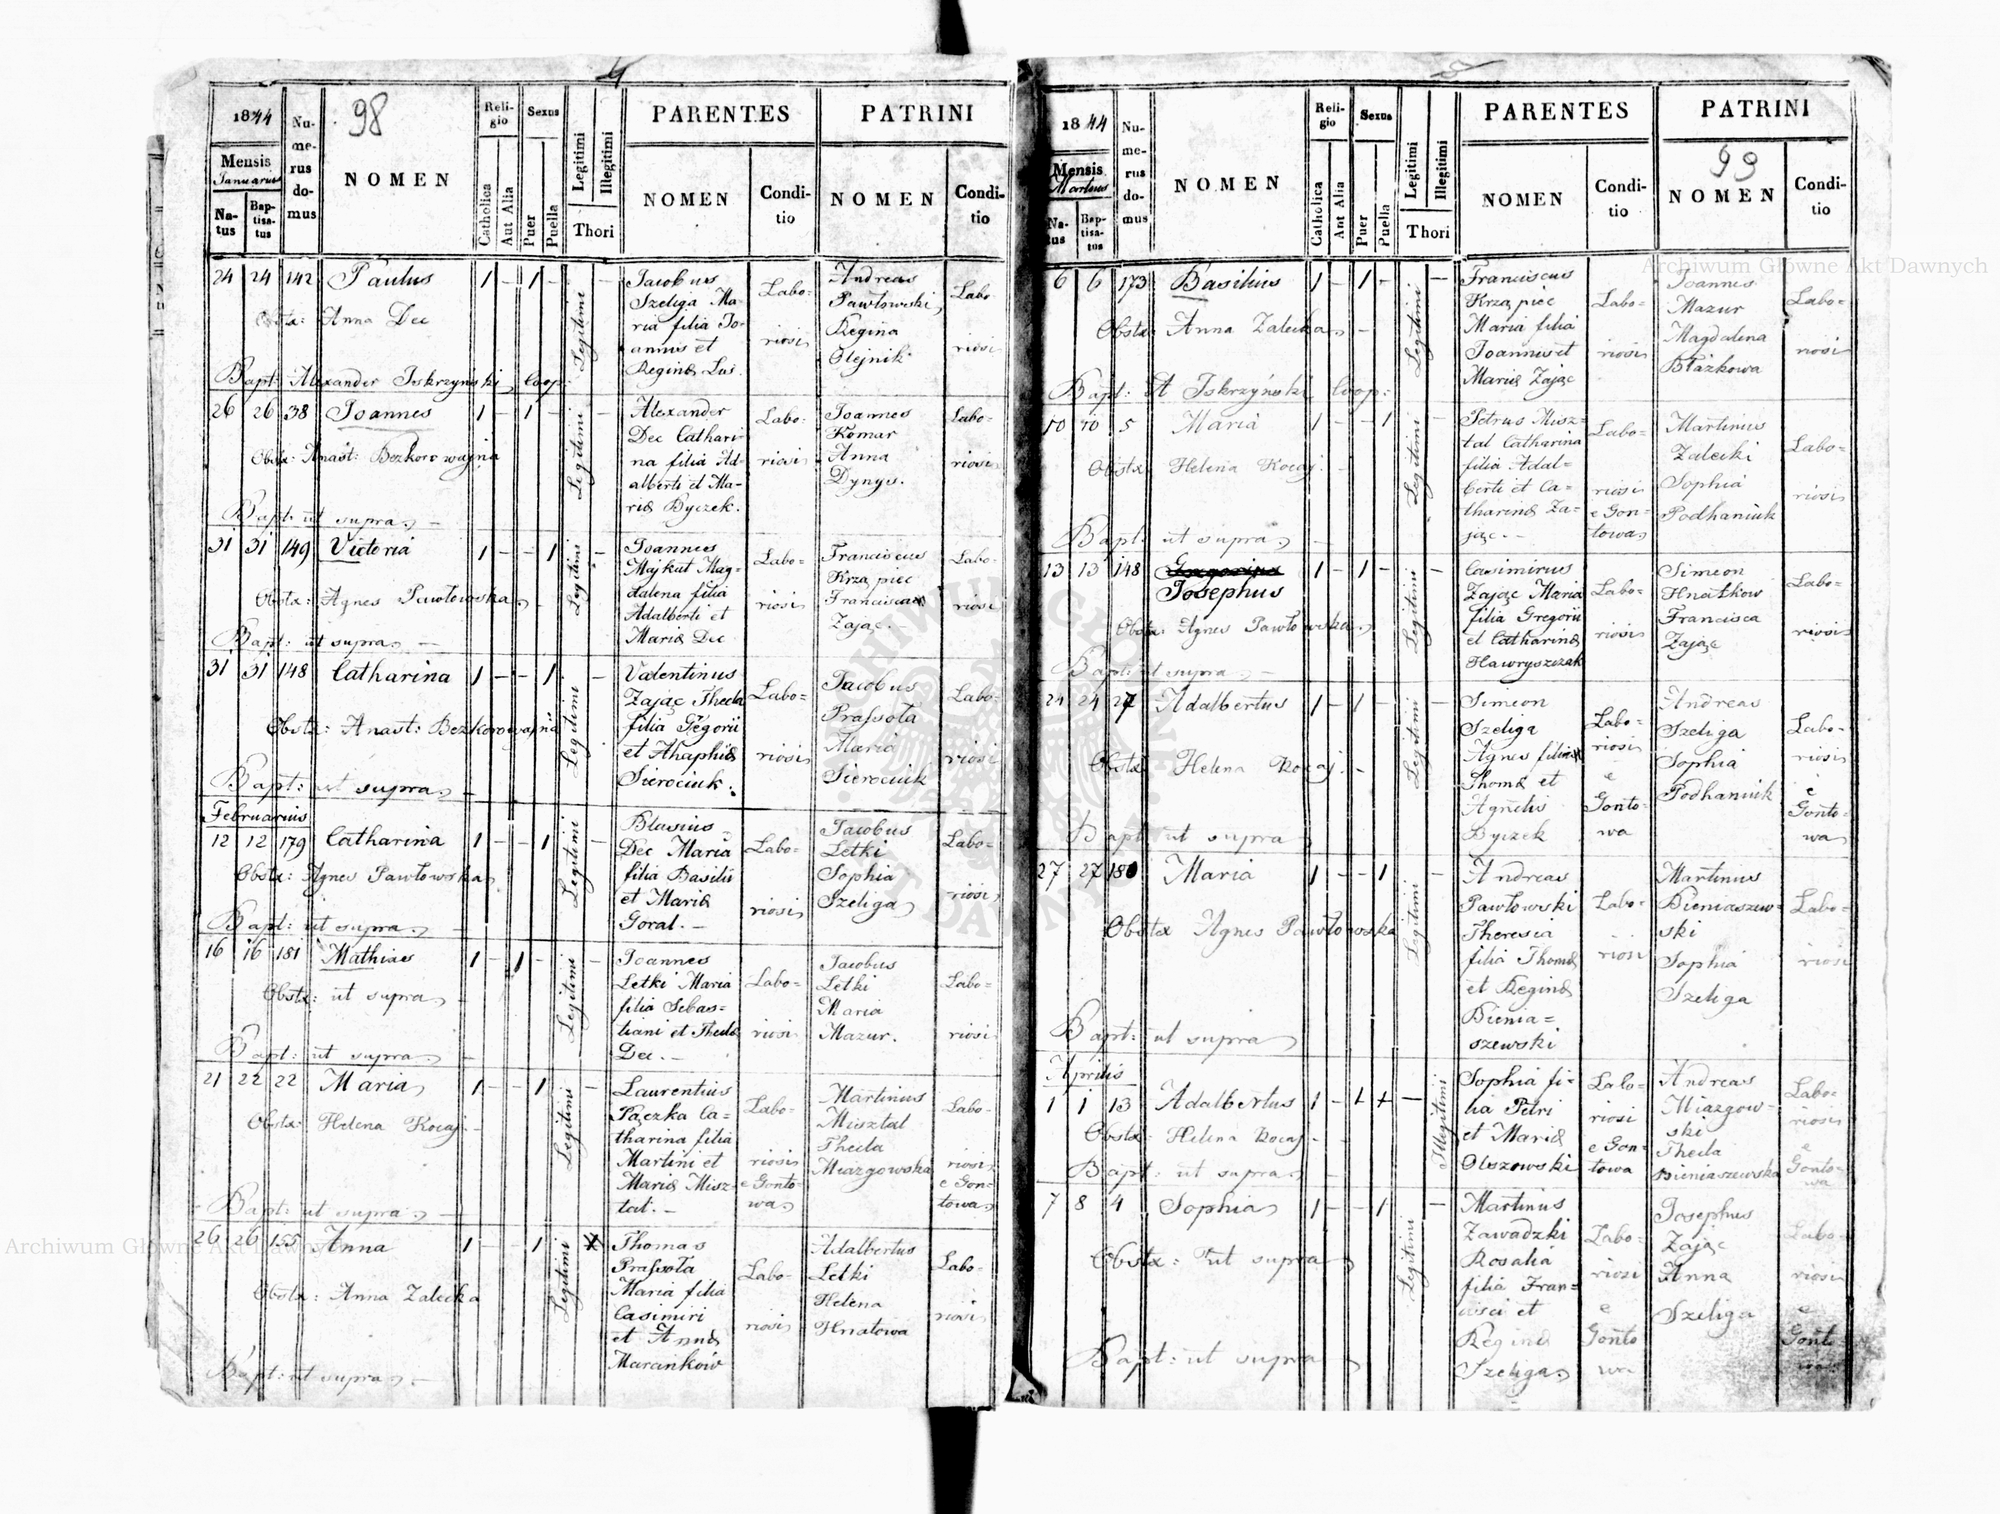 98
1844
Mensis
Januarius
Natus
Baptisatus
Numerus domus
NOMEN
Religio
Catholica
Aut Alia
Sexus
Puer
Puella
Legitimi
Illegitimi
Thori
PARENTES
NOMEN
Conditio
PATRINI
NOMEN
Conditio
24 24 142 Paulus 1 - 1 - Legitimi -
Obstx: Anna Dec
Bapt: Alexander Iskrzyński Coop:
Jacobus
Szeliga Ma-
ria filia Jo-
annis et
Reginæ Lus.
Labo-
riosi
Andreas
Pawłowski
Regina
Olejnik
Labo-
riosi
26 26 38 Joannes 1 - 1 - Legitimi -
Obstx: Anast: Bezkorowajna
Bapt: ut supra -
Alexander
Dec Cathari-
na filia Ad-
alberti et Ma-
riæ Byczek.
Labo-
riosi
Joannes
Komar
Anna
Dynys.
Labo-
riosi
31 31 149 Victoria 1 - - 1 Legitimi -
Obstx: Agnes Pawłowska
Bapt: ut supra -
Joannes
Majkut Mag-
dalena filia
Adalberti et
Mariæ Dec
Labo-
riosi
Franciscus
Krząpiec
Francisca
Zając.
Labo-
riosi
31 31 148 Catharina 1 - - 1 Legitimi -
Obstx: Anast: Bezkorowajna
Bapt: ut supra -
Valentinus
Zając Thecla
filia Gregorii
et Ahaphiæ
Sierociuk.
Labo-
riosi
Jacobus
Prassoła
Maria
Sierociuk
Labo-
riosi
Februarius
12 12 179 Catharina 1 - - 1 Legitimi -
Obstx: Agnes Pawłowska
Bapt: ut supra -
Blasius
Dec Maria
filia Basilii
et Mariæ
Goral. -
Labo-
riosi
Jacobus
Letki
Sophia
Szeliga
Labo-
riosi
16 16 181 Mathias 1 - 1 - Legitimi -
Obstx: ut supra -
Bapt: ut supra -
Joannes
Letki Maria
filia Sebas-
tiani et Theclæ
Dec. -
Labo-
riosi
Jacobus
Letki
Maria
Mazur.
Labo-
riosi
21 22 22 Maria 1 - - 1 Legitimi -
Obstx: Helena Kocaj -
Bapt: ut supra -
Laurentius
Pączka Ca-
tharina filia
Martini et
Mariæ Misz-
tal. -
Labo-
riosi
e Gonto-
wa
Martinus
Misztal
Thecla
Miazgowska
Labo-
riosi
e Gon-
towa
26 26 155 Anna 1 - - 1 Legitimi
Obstx: Anna Zalecka
Bapt: ut supra -
Thomas
Prassoła
Maria filia
Casimiri
et Annæ
Marcinków
Labo-
riosi
Adalbertus
Letki
Helena
Hnatowa
Labo-
riosi
99
1844
Mensis
Martius
Natus
Baptisatus
Numerus domus
NOMEN
Religio
Catholica
Aut Alia
Sexus
Puer
Puella
Legitimi
Illegitimi
Thori
PARENTES
NOMEN
Conditio
PATRINI
NOMEN
Conditio
6 6 173 Basilius 1 - 1 - Legitimi -
Obstx: Anna Zalecka -
Bapt: A Iskrzyński Coop:
Franciscus
Krząpiec
Maria filia
Joannis et
Mariæ Zając
Labo-
riosi
Joannes
Mazur
Magdalena
Błażkowa
Labo-
riosi
10 10 5 Maria 1 - - 1 Legitimi -
Obstx: Helena Kocaj -
Bapt: ut supra -
Petrus Misz-
tal Catharina
filia Adal-
berti et Ca-
tharinæ Za-
jąc. -
Labo-
riosi
e Gon-
towa
Martinus
Zalecki
Sophia
Podhaniuk
Labo-
riosi
13 13 148 Josephus 1 - 1 - Legitimi -
Obstx: Agnes Pawłowska
Bapt: ut supra -
Casimirus
Zając Maria
filia Gregorii
et Catharinæ
Hawryszczak
Labo-
riosi
Simeon
Hnatkow
Francisca
Zając
Labo-
riosi
24 24 27 Adalbertus 1 - 1 - Legitimi -
Obstx: Helena Kocaj -
Bapt: ut supra -
Simeon
Szeliga
Agnes filia
Thomæ et
Agnetis
Byczek
Labo-
riosi
e
Gonto-
wa
Andreas
Szeliga
Sophia
Podhaniuk
Labo-
riosi
e
Gonto-
wa
27 27 180 Maria 1 - - 1 Legitimi -
Obstx: Agnes Pawłowska
Bapt: ut supra
Andreas
Pawłowski
Theresia
filia Thomæ
et Reginæ
Bienia-
szewski
Labo-
riosi
Martinus
Bieniaszew-
ski
Sophia
Szeliga
Labo-
riosi
Aprilis
1 1 13 Adalbertus 1 - Illegitimi
Obstx: Helena Kocaj -
Bapt: ut supra -
Sophia fi-
lia Petri
et Mariæ
Olszowski
Labo-
riosi
e Gon-
towa
Andreas
Miazgow-
ski
Thecla
Bieniaszewska
Labo-
riosi
e
Gonto-
wa
7 8 4 Sophia 1 - - 1 Legitimi -
Obstx: ut supra
Bapt: ut supra
Martinus
Zawadzki
Rosalia
filia Fran-
cisci et
Reginæ
Szeliga
Labo-
riosi
e
Gonto
wa
Josephus
Zając
Anna
Szeliga
Labo-
riosi
e
Gonto
Archiwum Główne Akt Dawnych
Archiwum Główne Akt Dawnych